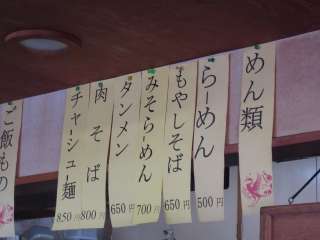 めん類
らーめん 500円
もやしそば 650円
みそらーめん 700円
タンメン 650円
肉そば 800円
チャーシュー麺 850円
ご飯もの